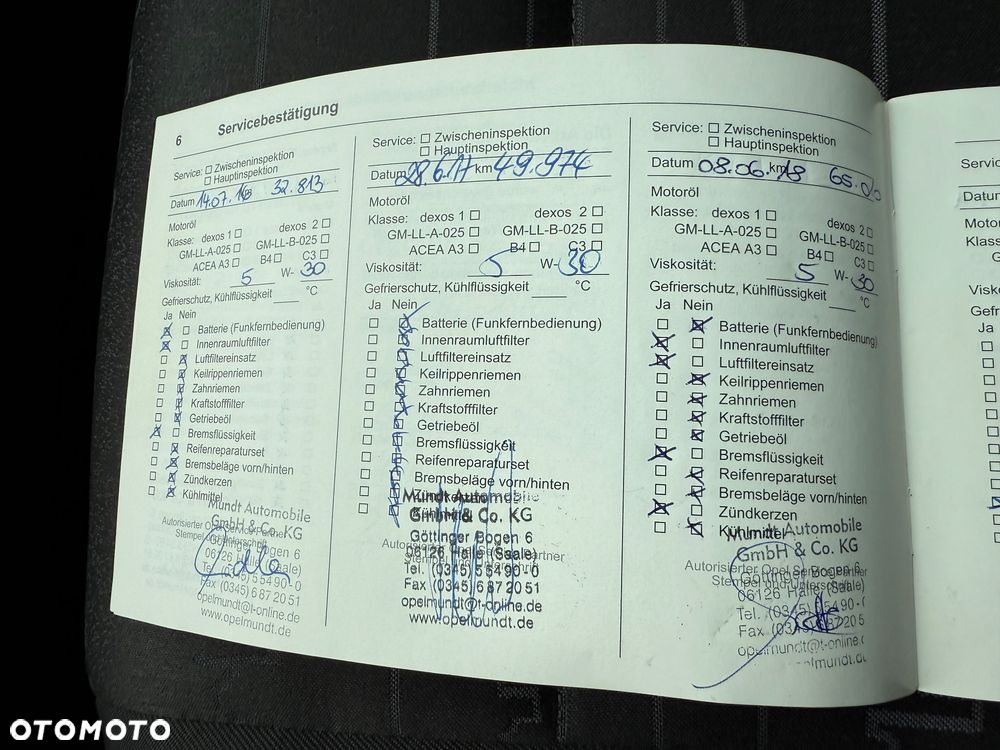 6 Servicebestätigung
Service: Zwischeninspektion
Hauptinspektion
Datum 14.07.16 32.813
Motoröl
Klasse: dexos 1 dexos 2
GM-LL-A-025 GM-LL-B-025
ACEA A3 B4 C3
Viskosität: 5 W- 30
Gefrierschutz, Kühlflüssigkeit °C
Ja Nein
Batterie (Funkfernbedienung)
Innenraumluftfilter
Luftfiltereinsatz
Keilrippenriemen
Zahnriemen
Kraftstofffilter
Getriebeöl
Bremsflüssigkeit
Reifenreparaturset
Bremsbeläge vorn/hinten
Zündkerzen
Kühlmittel
Mundt Automobile
GmbH & Co. KG
Autorisierter Opel Service Partner
Göttinger Bogen 6
Stempel und Unterschrift
06126 Halle (Saale)
Tel. (0345) 5 54 90 - 0
Fax (0345) 6 87 20 51
opelmundt@t-online.de
www.opelmundt.de
Service: Zwischeninspektion
Hauptinspektion
Datum 28.6.17 km 49.974
Motoröl
Klasse: dexos 1 dexos 2
GM-LL-A-025 GM-LL-B-025
ACEA A3 B4 C3
Viskosität: 5 W- 30
Gefrierschutz, Kühlflüssigkeit °C
Ja Nein
Batterie (Funkfernbedienung)
Innenraumluftfilter
Luftfiltereinsatz
Keilrippenriemen
Zahnriemen
Kraftstofffilter
Getriebeöl
Bremsflüssigkeit
Reifenreparaturset
Bremsbeläge vorn/hinten
Zündkerzen
Mundt Automobile
Kühlmittel
GmbH & Co. KG
Göttinger Bogen 6
Autorisierter Opel Service Partner
06126 Halle (Saale)
Stempel und Unterschrift
Tel. (0345) 5 54 90 - 0
Fax (0345) 6 87 20 51
opelmundt@t-online.de
www.opelmundt.de
Service: Zwischeninspektion
Hauptinspektion
Datum 08.06.18 km 65.0
Motoröl
Klasse: dexos 1 dexos 2
GM-LL-A-025 GM-LL-B-025
ACEA A3 B4 C3
Viskosität: 5 W- 30
Gefrierschutz, Kühlflüssigkeit °C
Ja Nein
Batterie (Funkfernbedienung)
Innenraumluftfilter
Luftfiltereinsatz
Keilrippenriemen
Zahnriemen
Kraftstofffilter
Getriebeöl
Bremsflüssigkeit
Reifenreparaturset
Bremsbeläge vorn/hinten
Zündkerzen
Kühlmittel
Mundt Automobile
GmbH & Co. KG
Autorisierter Opel Service Partner
Göttinger Bogen 6
Stempel und Unterschrift
06126 Halle (Saale)
Tel. (0345) 5 54 90 -
Fax (0345) 6 87 20 5
opelmundt@t-online.
lmundt.de
Servic
Datum
Motoröl
Klasse
Visko
Gefri
Ja
OTOMOTO